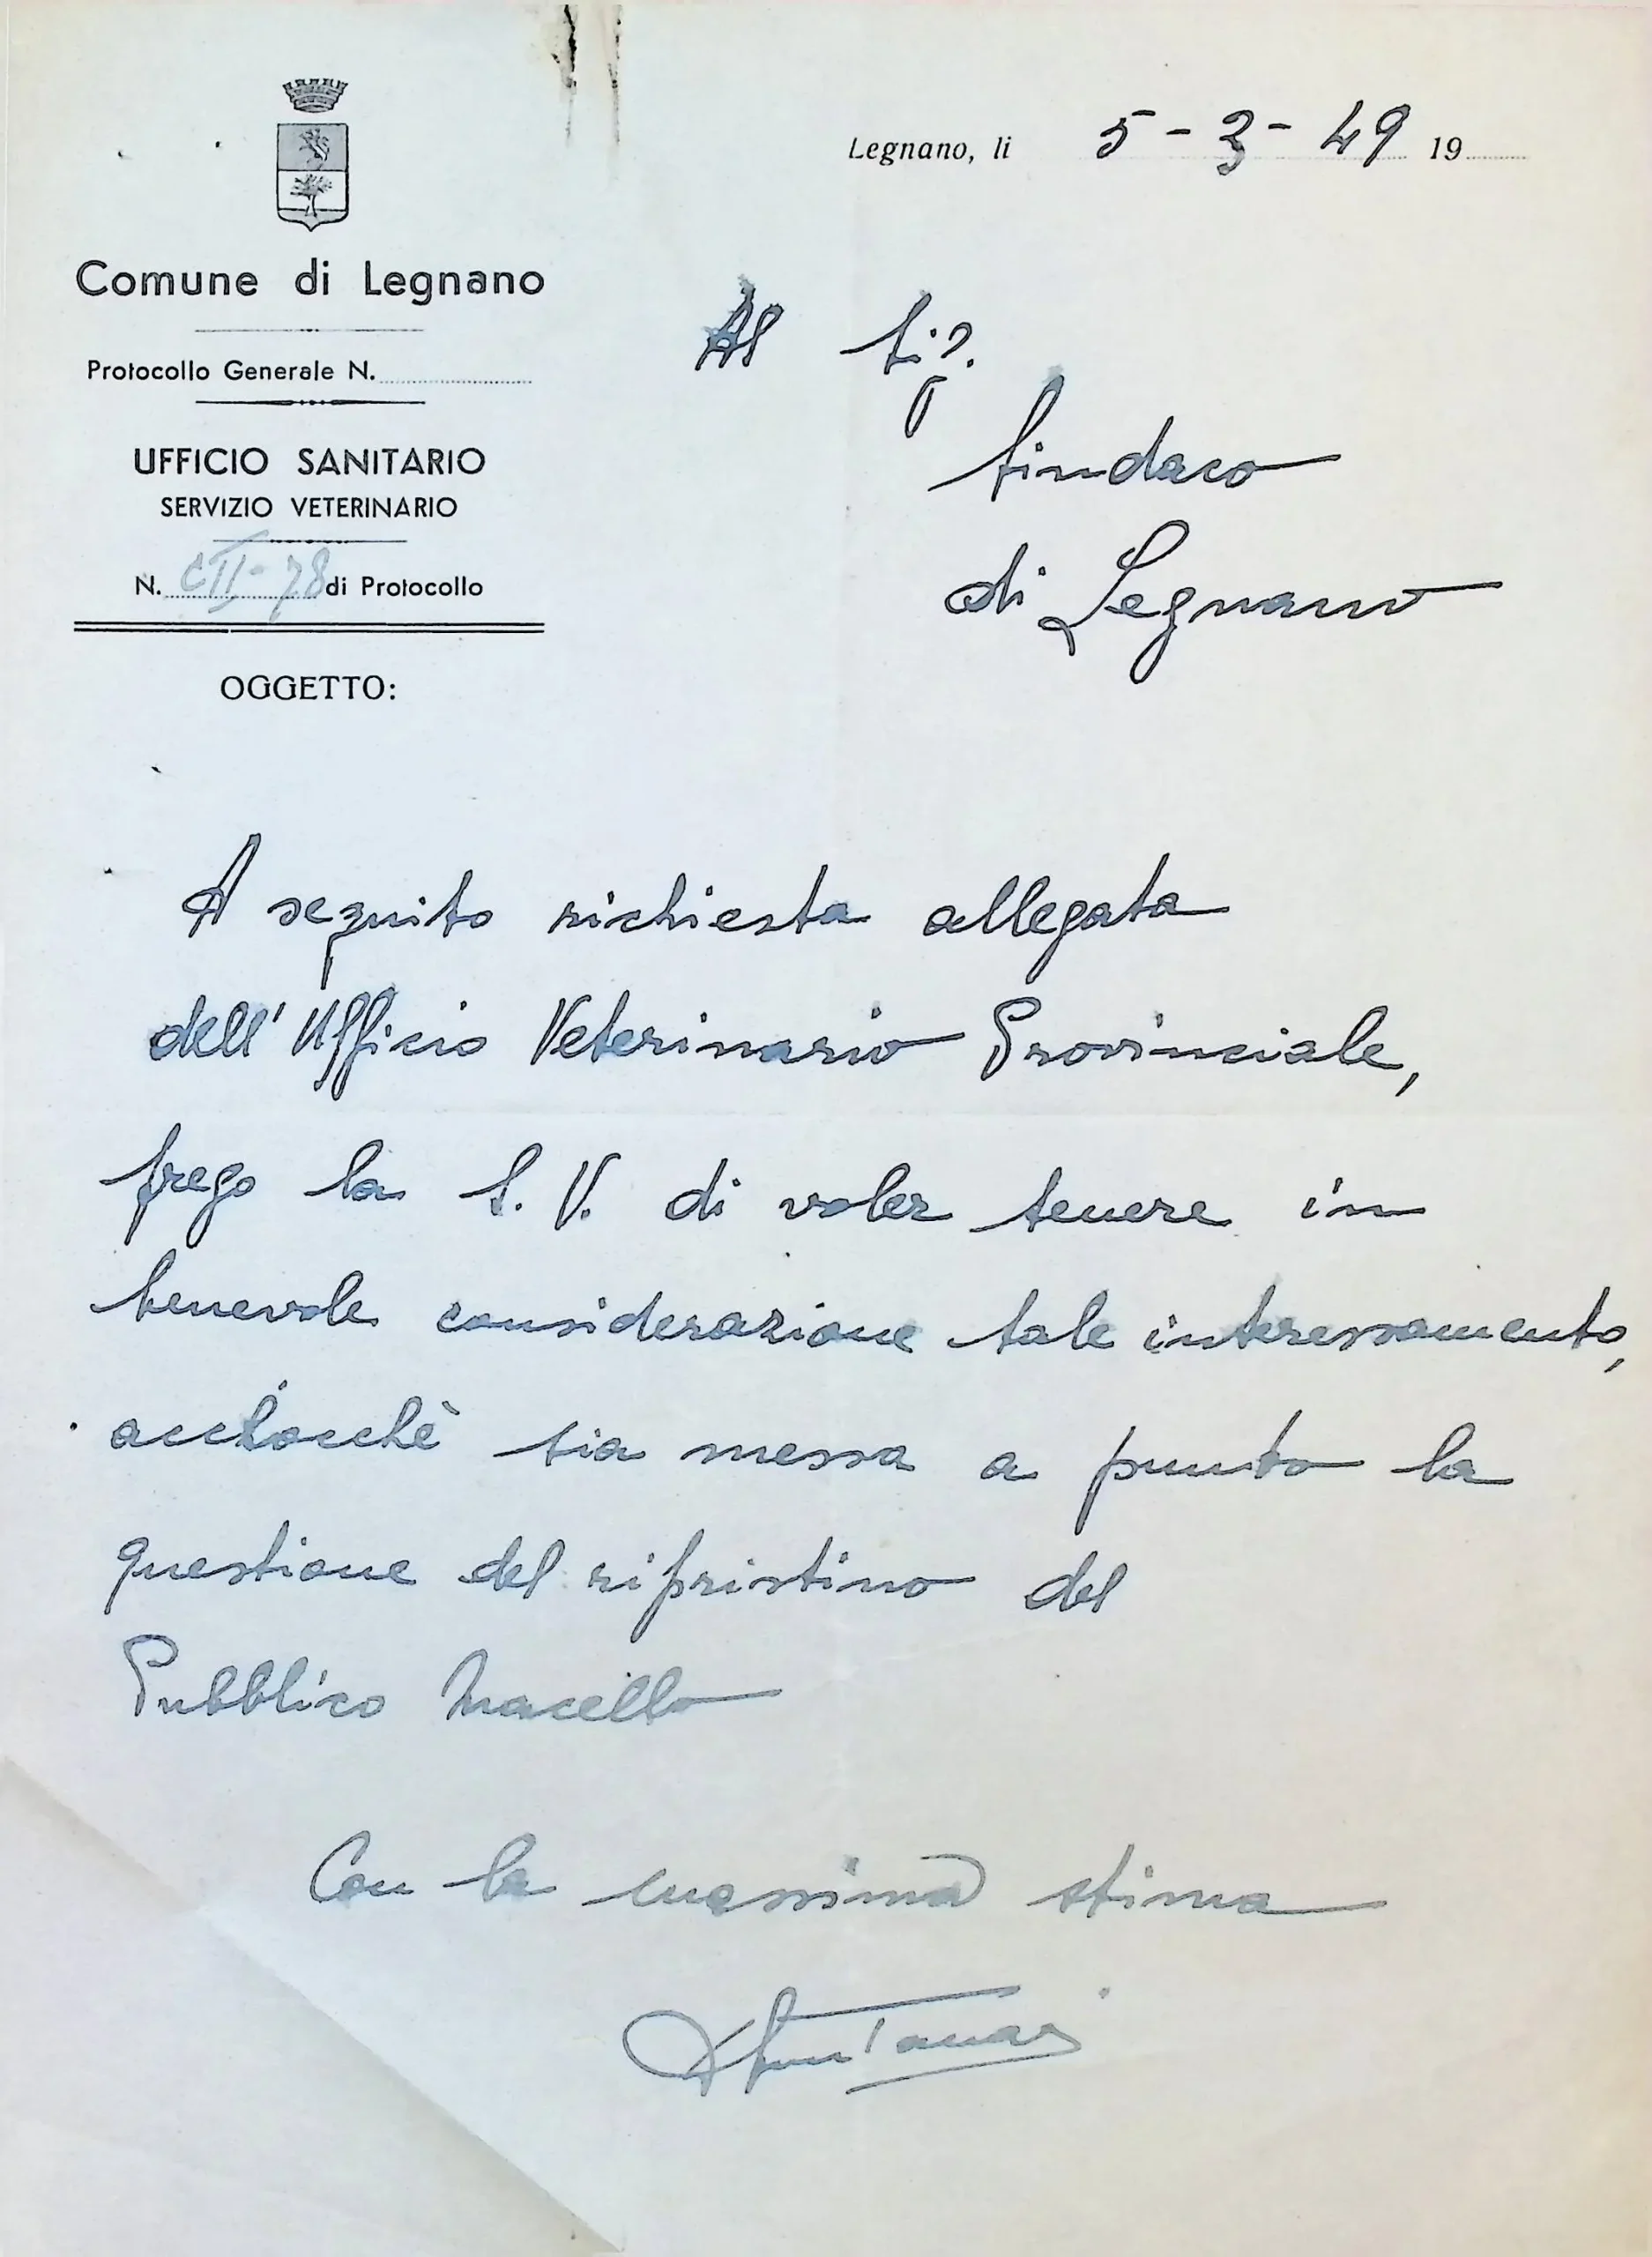 Legnano, li 5-3-49 19
Comune di Legnano
Protocollo Generale N.
UFFICIO SANITARIO
SERVIZIO VETERINARIO
N. CII-78 di Protocollo
OGGETTO:
Al Sig.
Sindaco
di Legnano
A seguito richiesta allegata
dell'Ufficio Veterinario Provinciale,
prego la S. V. di voler tenere in
benevole considerazione tale interessamento,
acciocchè sia messa a punto la
questione del ripristino del
Pubblico Macello
Con la massima stima